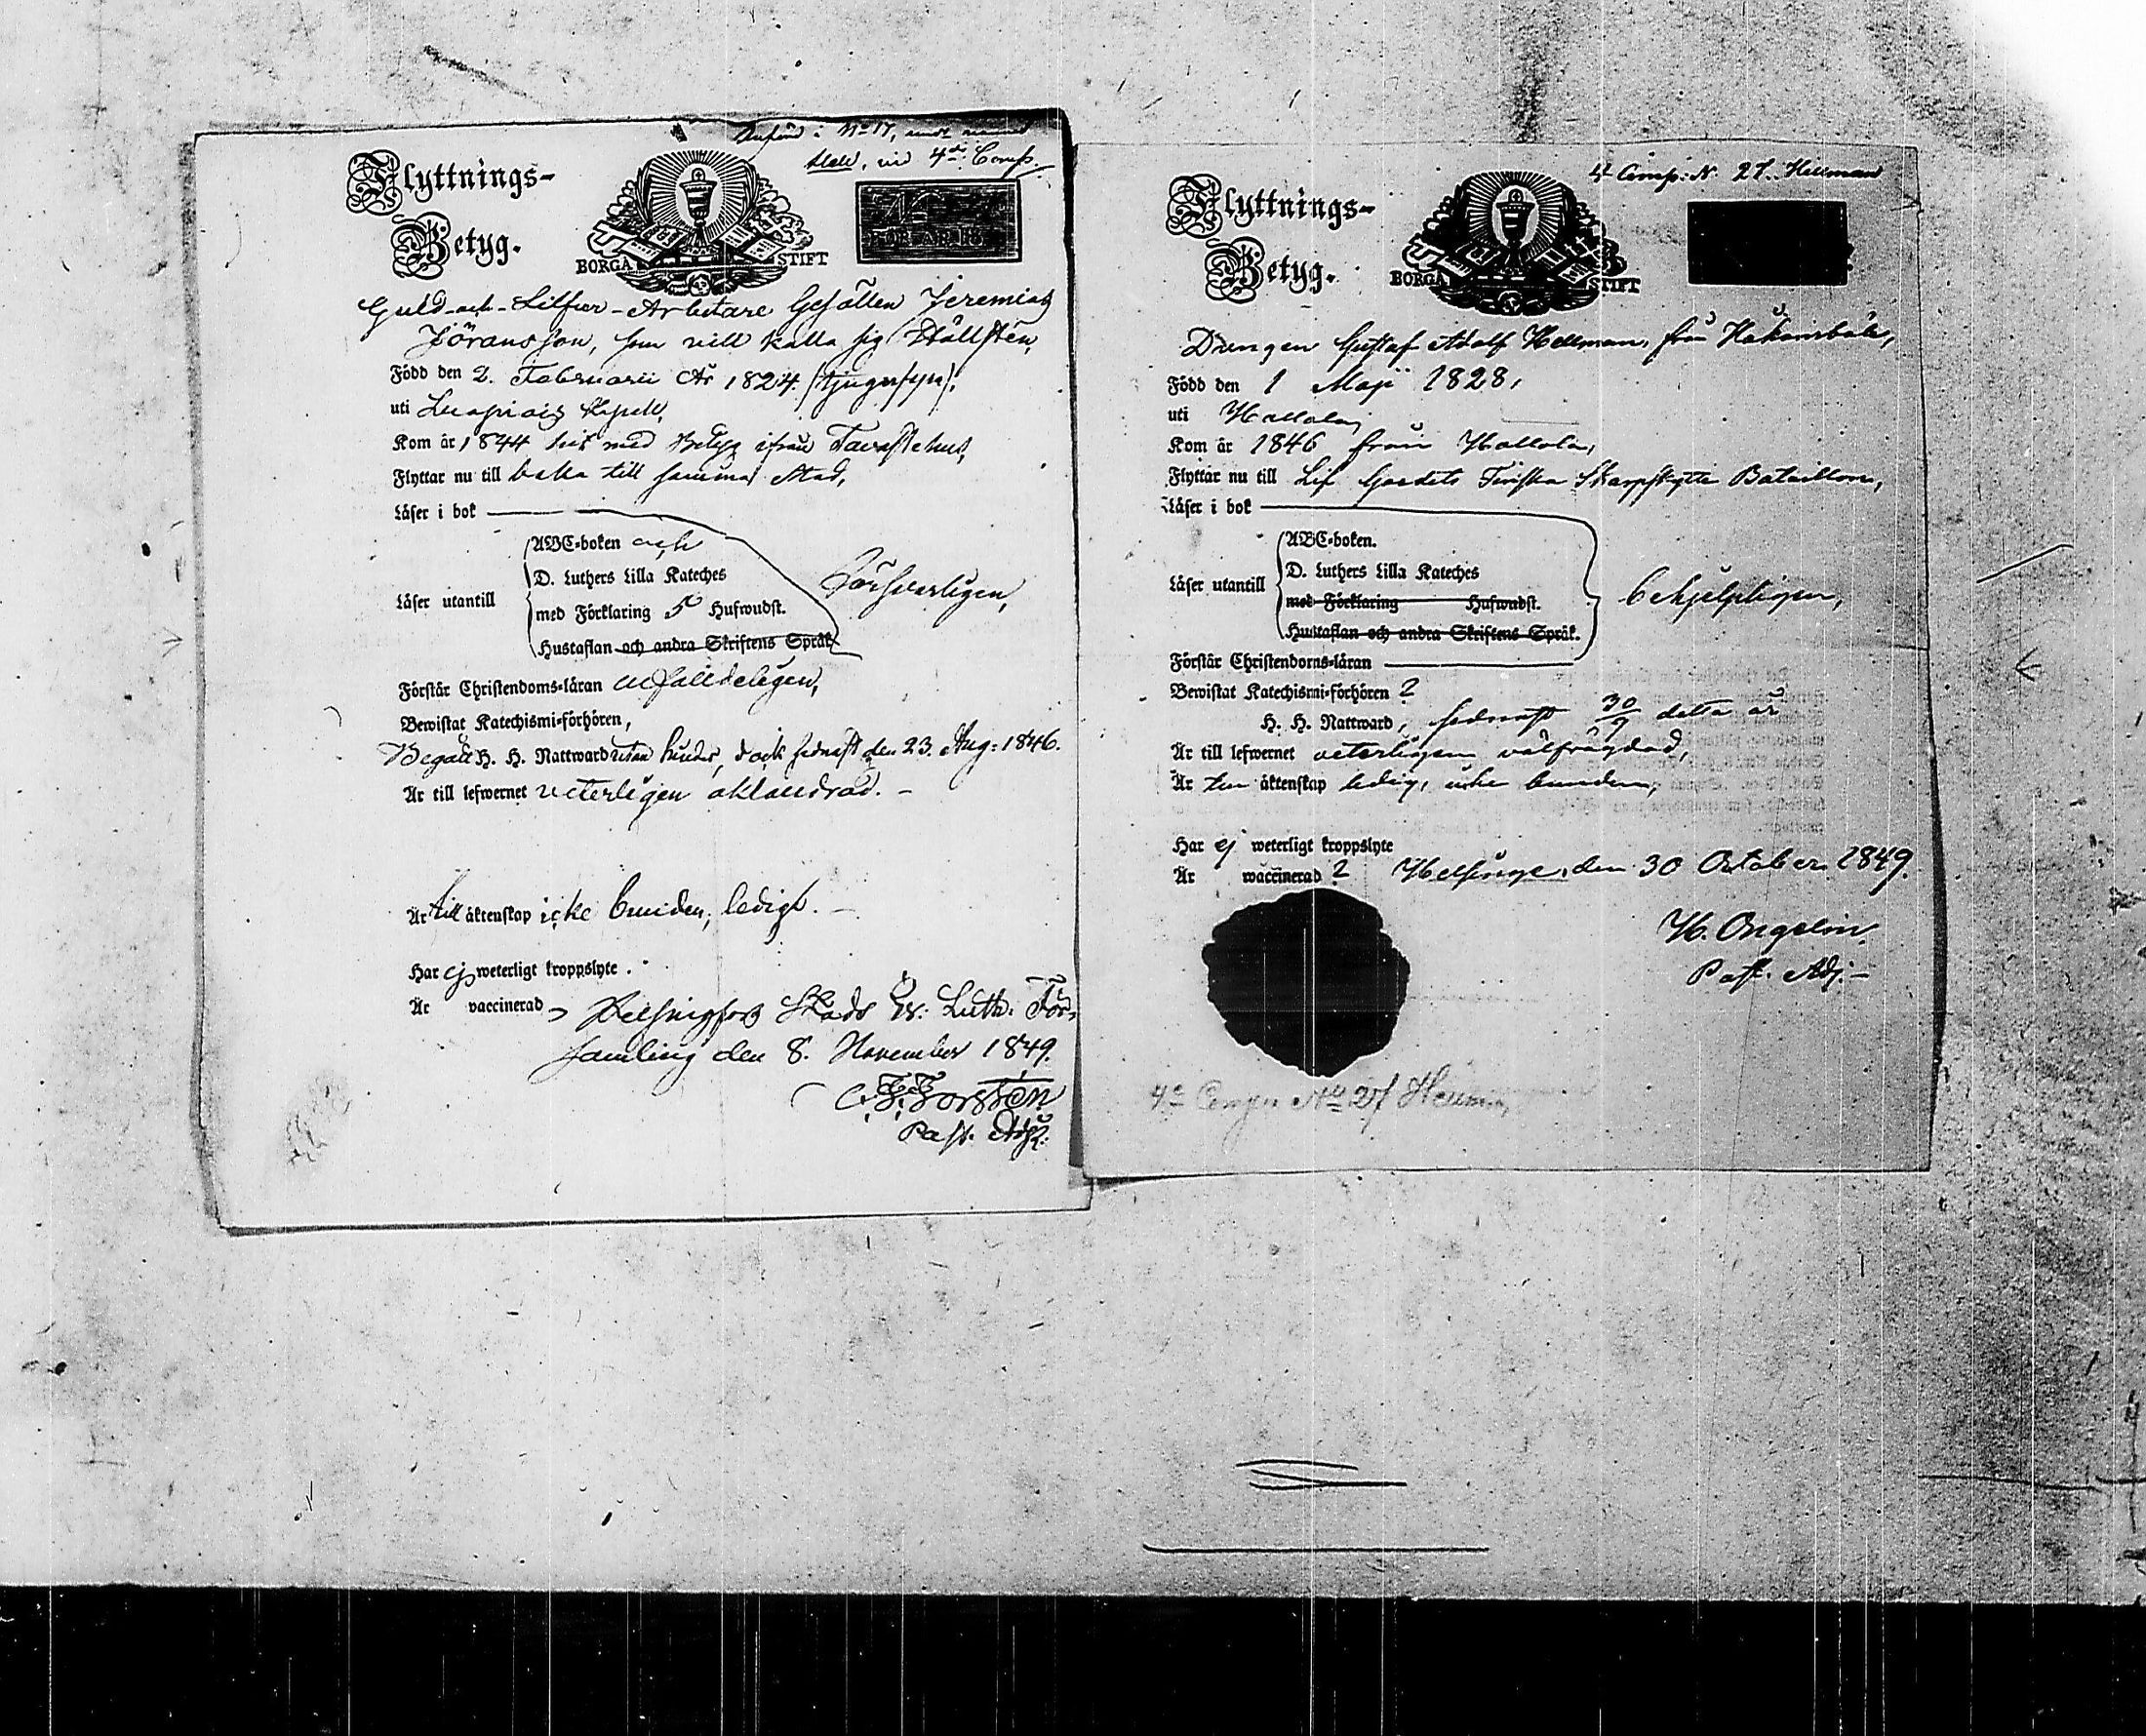 Införd i No 17, under namn
Mell, vid 4de Comp.
Flyttnings-
Betyg.
BORGÅ STIFT
FÖR ÅR 18
Guld-och-Silfwer-Arbetare Gesällen Jeremias
Jöransson, som vill kalla sig Hällstén,
Född den 2. Februarii År 1824. (tjugufyra),
uti Luopiois Kapell,
Kom år 1844 hit med Betyg ifrån Tavastehus,
Flyttar nu till baka till samma Stad,
Läser i bok
ABC-boken och
D. Luthers Lilla Kateches
Läser utantill
med Förklaring 5 Hufwudst.
Hustaflan och andra Skriftens Språk
Försvarligen,
Förstår Christendoms-läran
Bewistat Katechismi-förhören,
Begått H. H. Nattward utan hinder, dock sednast den 23. Aug: 1846.
Är till lefwernet veterligen oklandrad.
Är till äktenskap icke bunden, ledig.
Har ej weterligt kroppslyte.
Är vaccinerad, Helsingfors Stads Ev: Luth. För-
samling den 8. November 1849.
C. F. Forstén
Past. Adj.
4e Comp: N. 27. Hellman
Flyttnings-
Betyg.
BORGÅ STIFT
Drengen Gustaf Adolf Hellman, från Håkansböle,
Född den 1 Maji 1828,
uti Hollola,
Kom år 1846 från Hollola,
Flyttar nu till Lif Gardets Finska Skarpskytte Bataillon,
Läser i bok
ABC-boken.
D. Luthers Lilla Kateches
Läser utantill
med Förklaring Hufwudst.
Hustaflan och andra Skriftens Språk.
behjelpligen,
Förstår Christendoms-läran
Bewistat Katechismi-förhören ?
H. H. Nattward, sednast 30/9 detta år
Är till lefwernet veterligen välfrägdad,
Är till äktenskap ledig, icke bunden,
Har ej weterligt kroppslyte
Är waccinerad ? Helsinge, den 30 October 1849.
H. Ongelin
Past. Adj.
4e Comp No 27 Hellman